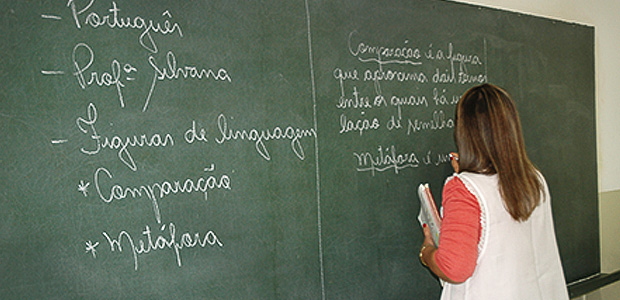 - Português
- Profª Silvana
- Figuras de linguagem
* Comparação
* Metáfora
Comparação é a figura
que aproxima dois termos
entre os quais há u
lação de semelha
Metáfora é um